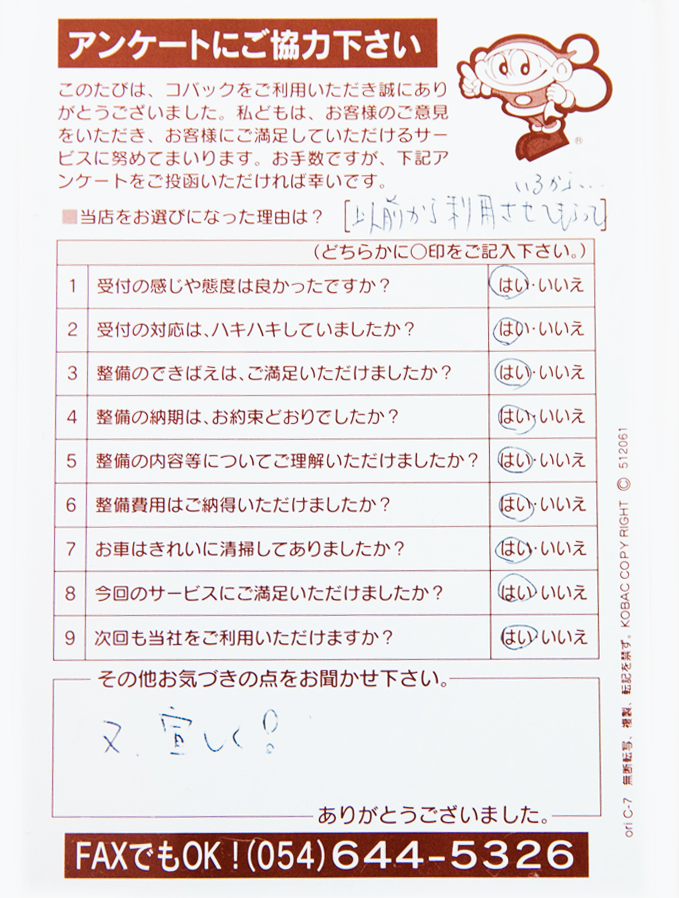 アンケートにご協力下さい
このたびは、コバックをご利用いただき誠にあり
がとうございました。私どもは、お客様のご意見
をいただき、お客様にご満足していただけるサー
ビスに努めてまいります。お手数ですが、下記ア
ンケートをご投函いただければ幸いです。
®
■当店をお選びになった理由は? [以前から利用させてもらって]
いるから...
(どちらかに○印をご記入下さい。)
1 受付の感じや態度は良かったですか? はい・いいえ
2 受付の対応は、ハキハキしていましたか? はい・いいえ
3 整備のできばえは、ご満足いただけましたか? はい・いいえ
4 整備の納期は、お約束どおりでしたか? はい・いいえ
5 整備の内容等についてご理解いただけましたか? はい・いいえ
6 整備費用はご納得いただけましたか? はい・いいえ
7 お車はきれいに清掃してありましたか? はい・いいえ
8 今回のサービスにご満足いただけましたか? はい・いいえ
9 次回も当社をご利用いただけますか? はい・いいえ
その他お気づきの点をお聞かせ下さい。
又、宜しく!
ありがとうございました。
FAXでもOK!(054)644-5326
ori C-7 無断転写、複製、転記を禁ず。KOBAC COPY RIGHT © 512061